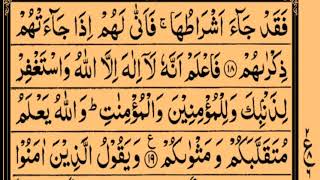 فَقَدۡ جَآءَ اَشۡرَاطُهَا ۚ فَاَنّٰى لَهُمۡ اِذَا جَآءَتۡهُمۡ
ذِكۡرٰٮهُمۡ ﴿۱۸﴾ فَاعۡلَمۡ اَنَّهٗ لَاۤ اِلٰهَ اِلَّا اللّٰهُ وَاسۡتَغۡفِرۡ
لِذَنۡۢبِكَ وَلِلۡمُؤۡمِنِيۡنَ وَالۡمُؤۡمِنٰتِ ؕ وَاللّٰهُ يَعۡلَمُ
مُتَقَلَّبَكُمۡ وَمَثۡوٰٮكُمۡ ﴿۱۹﴾ ع وَيَقُوۡلُ الَّذِيۡنَ اٰمَنُوۡا